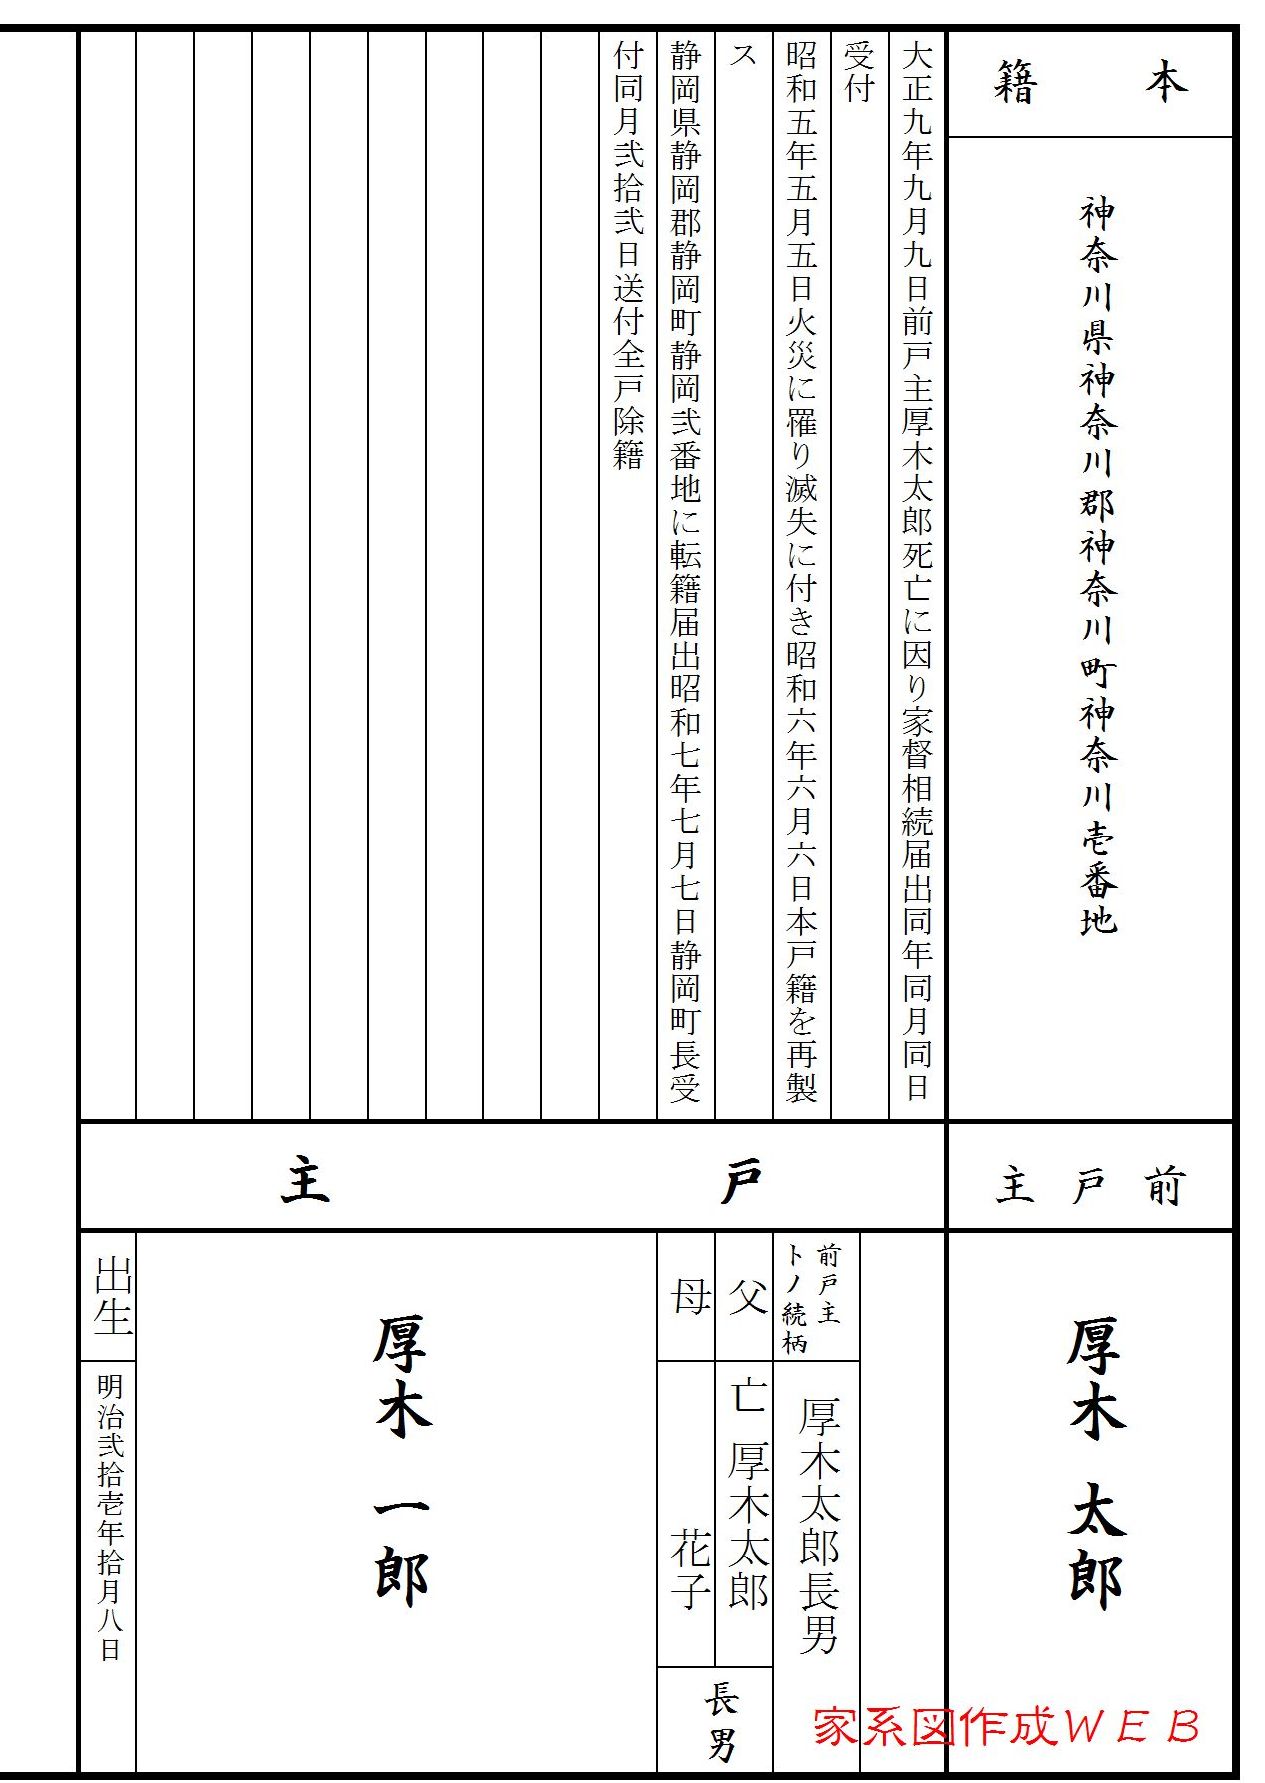 本籍
神奈川県神奈川郡神奈川町神奈川壱番地
大正九年九月九日前戸主厚木太郎死亡に因り家督相続届出同年同月同日
受付
昭和五年五月五日火災に罹り滅失に付き昭和六年六月六日本戸籍を再製
ス
静岡県静岡郡静岡町静岡弐番地に転籍届出昭和七年七月七日静岡町長受
付同月弐拾弐日送付全戸除籍
前戸主
厚木 太郎
戸主
前戸主
トノ続柄
厚木太郎長男
父
亡 厚木太郎
母
花子
長男
厚木 一郎
出生
明治弐拾壱年拾月八日
家系図作成ＷＥＢ